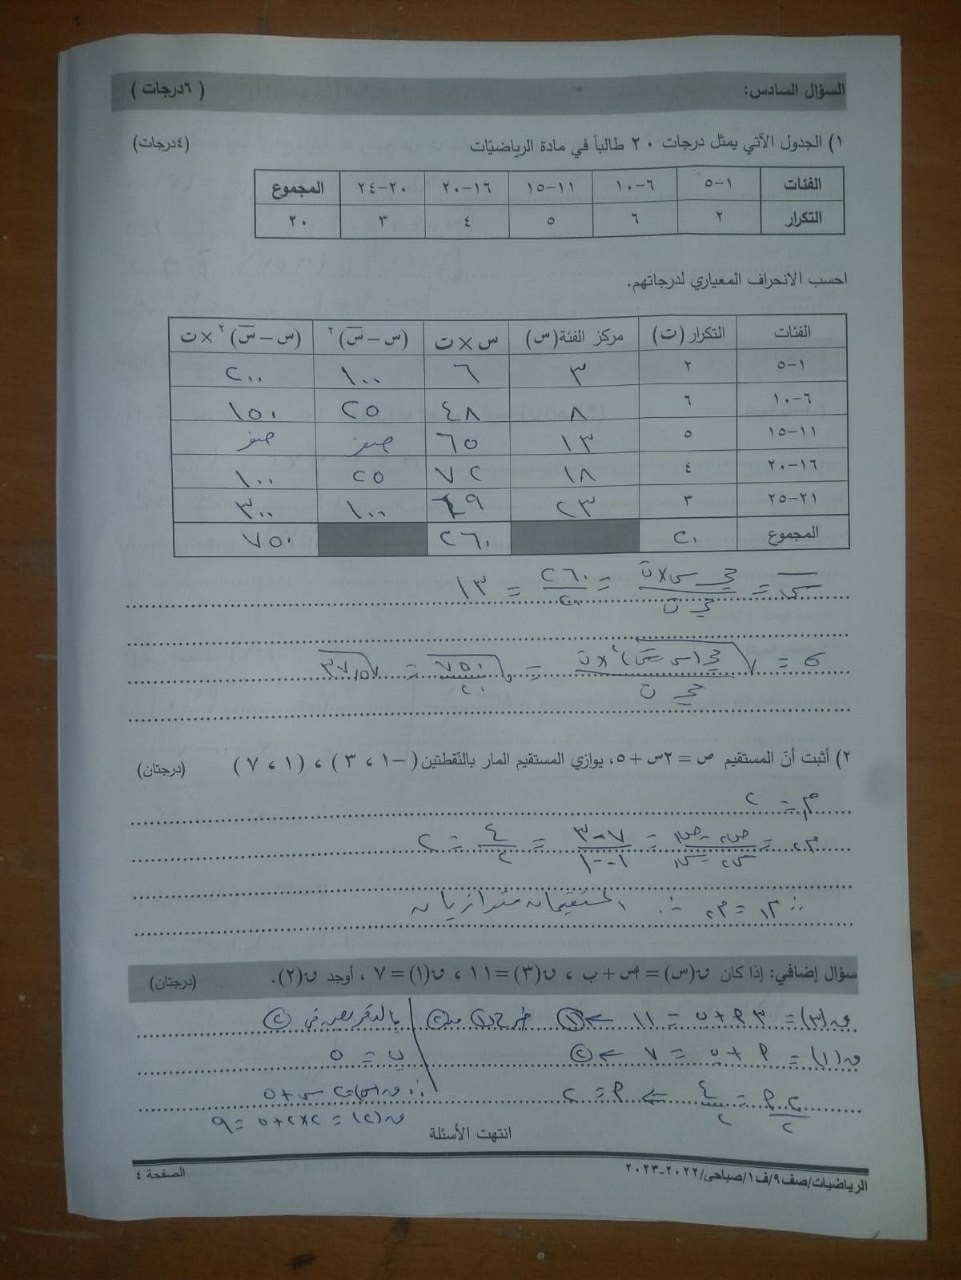 السؤال السادس: ( ٦درجات )
١) الجدول الآتي يمثل درجات ٢٠ طالباً في مادة الرياضيّات (٤درجات)
الفئات ١-٥ ٦-١٠ ١١-١٥ ١٦-٢٠ ٢٠-٢٤ المجموع
التكرار ٢ ٦ ٥ ٤ ٣ ٢٠
احسب الانحراف المعياري لدرجاتهم.
الفئات التكرار (ت) مركز الفئة(س) س×ت (س-س̅)٢ (س-س̅)٢×ت
١-٥ ٢ ٣ ٦ ١٠٠ ٢٠٠
٦-١٠ ٦ ٨ ٤٨ ٢٥ ١٥٠
١١-١٥ ٥ ١٣ ٦٥ صفر صفر
١٦-٢٠ ٤ ١٨ ٧٢ ٢٥ ١٠٠
٢١-٢٥ ٣ ٢٣ ٦٩ ١٠٠ ٣٠٠
المجموع ٢٠ ٢٦٠ ٧٥٠
س̅ = مجـ س×ت / مجـ ت = ٢٦٠ / ٢٠ = ١٣
= √ مجـ(س-س̅)٢×ت / مجـ ت = √ ٧٥٠ / ٢٠ = √ ٣٧,٥
٢) أثبت أنّ المستقيم ص = ٢س + ٥، يوازي المستقيم المار بالنّقطتين (-١ ، ٣) ، (١ ، ٧) (درجتان)
م١ = ٢
م٢ = ص٢-ص١ / س٢-س١ = ٧-٣ / ١--١ = ٤ / ٢ = ٢
∵ م١ = م٢ ∴ المستقيمان متوازيان
سؤال إضافي: إذا كان ق(س) = أس + ب ، ق(٣) = ١١ ، ق(١) = ٧ ، أوجد ق(٢). (درجتان)
ق(٣) = ٣أ + ب = ١١ ← ① طرح ① من ② بالتعويض في ②
ق(١) = أ + ب = ٧ ← ② ب = ٥
٢أ / ٢ = ٤ / ٢ ← أ = ٢ ∴ ق(س) = ٢س + ٥
ق(٢) = ٢×٢ + ٥ = ٩
انتهت الأسئلة
الرياضيات/صف٩/ف١/صباحي/٢٠٢٢-٢٠٢٣ الصفحة ٤